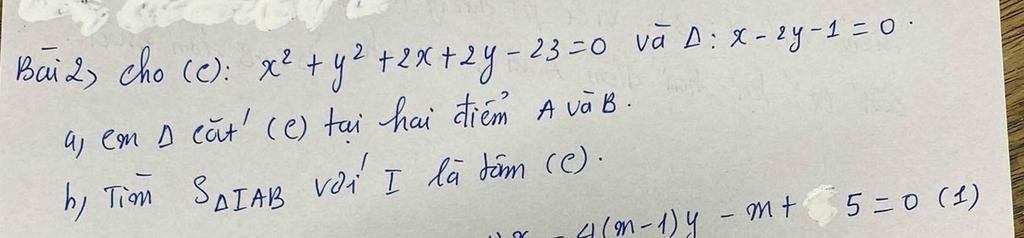 Bài 2, cho (C): x² + y² + 2x + 2y - 23 = 0 và Δ: x - 2y - 1 = 0.
a, cm Δ cắt (C) tại hai điểm A và B.
b, Tìm SΔIAB với I là tâm (C).
- 4(m-1)y - m + 5 = 0 (1)